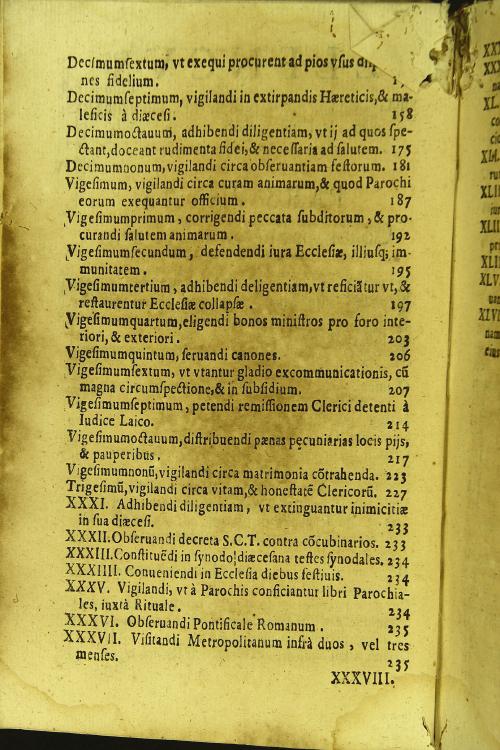 Decimumſextum, vt exequi procurent ad pios vſus
nes fidelium.
Decimumſeptimum, vigilandi in extirpandis Hæreticis,& ma-
leficis à diæceſi. 158
Decimumoctauum, adhibendi diligentiam, vt ij ad quos ſpe-
ctant,doceant rudimenta fidei,& neceſſaria ad ſalutem. 175
Decimumnonum,vigilandi circa obſeruantiam feſtorum. 181
Vigeſimum, vigilandi circa curam animarum,& quod Parochi
eorum exequantur officium. 187
Vigeſimumprimum, corrigendi peccata ſubditorum, & pro-
curandi ſalutem animarum. 192
Vigeſimumſecundum, defendendi iura Eccleſiæ, illiuſq; im-
munitatem. 195
Vigeſimumtertium, adhibendi deligentiam,vt reficiãtur vt,&
reſtaurentur Eccleſiæ collapſæ. 197
Vigeſimumquartum,eligendi bonos miniſtros pro foro inte-
riori, & exteriori. 203
Vigeſimumquintum, ſeruandi canones. 206
Vigeſimumſextum, vt vtantur gladio excommunicationis, cũ
magna circumſpectione,& in ſubſidium. 207
Vigeſimumſeptimum, petendi remiſſionem Clerici detenti à
Iudice Laico. 214
Vigeſimumoctauum,diſtribuendi pænas pecuniarias locis pijs,
& pauperibus. 217
Vigeſimumnonũ,vigilandi circa matrimonia cõtrahenda. 223
Trigeſimũ,vigilandi circa vitam,& honeſtatẽ Clericorũ. 227
XXXI. Adhibendi diligentiam, vt extinguantur inimicitiæ
in ſua diæceſi. 233
XXXII.Obſeruandi decreta S.C.T. contra cõcubinarios. 233
XXXIII.Conſtituẽdi in ſynodo diæceſana teſtes ſynodales. 234
XXXIIII. Conueniendi in Eccleſia diebus feſtiuis. 234
XXXV. Vigilandi, vt à Parochis conficiantur libri Parochia-
les, iuxtà Rituale. 234
XXXVI. Obſeruandi Pontificale Romanum. 235
XXXVII. Viſitandi Metropolitanum infrà duos, vel tres
menſes. 235
XXXVIII.